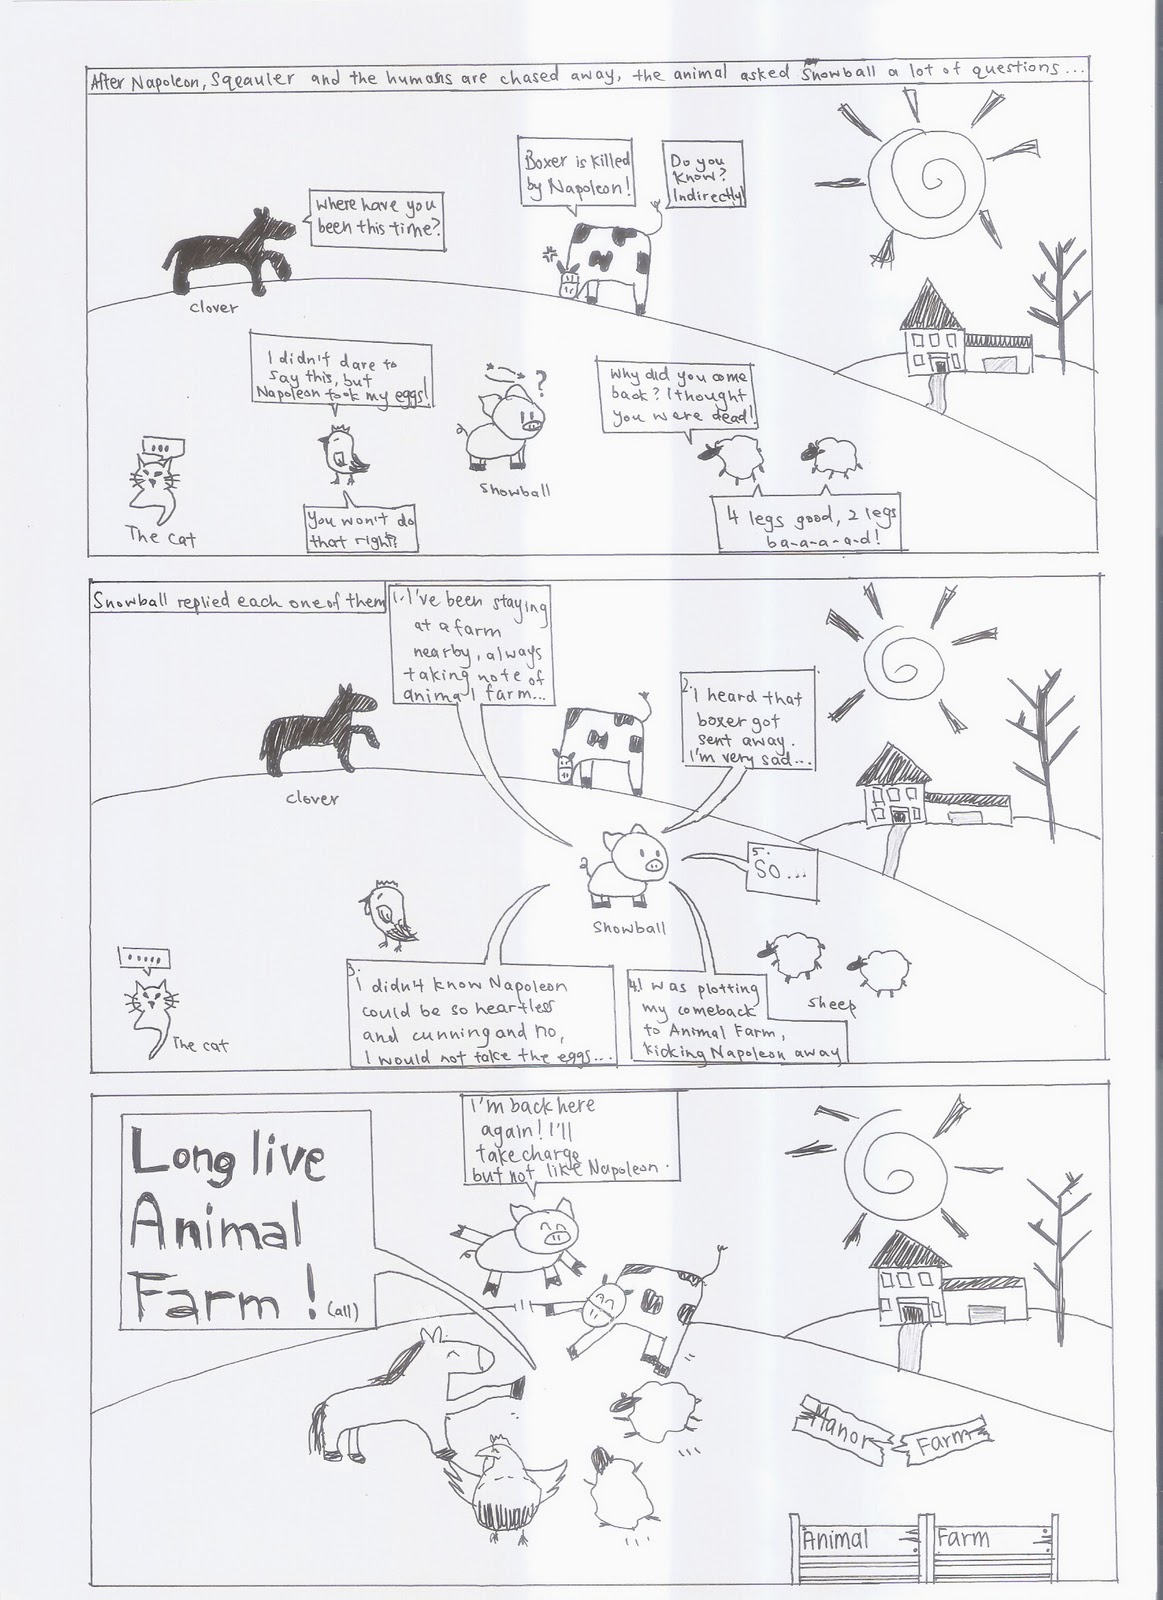 After Napoleon, Sqeauler and the humans are chased away, the animal asked Snowball a lot of questions...
Boxer is killed
by Napoleon!
Do you
know?
Indirectly!
where have you
been this time?
clover
I didn't dare to
say this, but
Napoleon took my eggs!
?
Why did you come
back? I thought
you were dead!
...
Snowball
The cat
You won't do
that right?
4 legs good, 2 legs
ba-a-a-a-d!
Snowball replied each one of them
1. I've been staying
at a farm
nearby, always
taking note of
animal farm...
2. I heard that
boxer got
sent away.
I'm very sad...
clover
5.
So...
Snowball
.....
The cat
3.
I didn't know Napoleon
could be so heartless
and cunning and no,
I would not take the eggs...
4. I was plotting
my comeback
to Animal Farm,
kicking Napoleon away
sheep
Long live
Animal
Farm! (all)
I'm back here
again! I'll
take charge
but not like Napoleon.
Manor Farm
Animal Farm